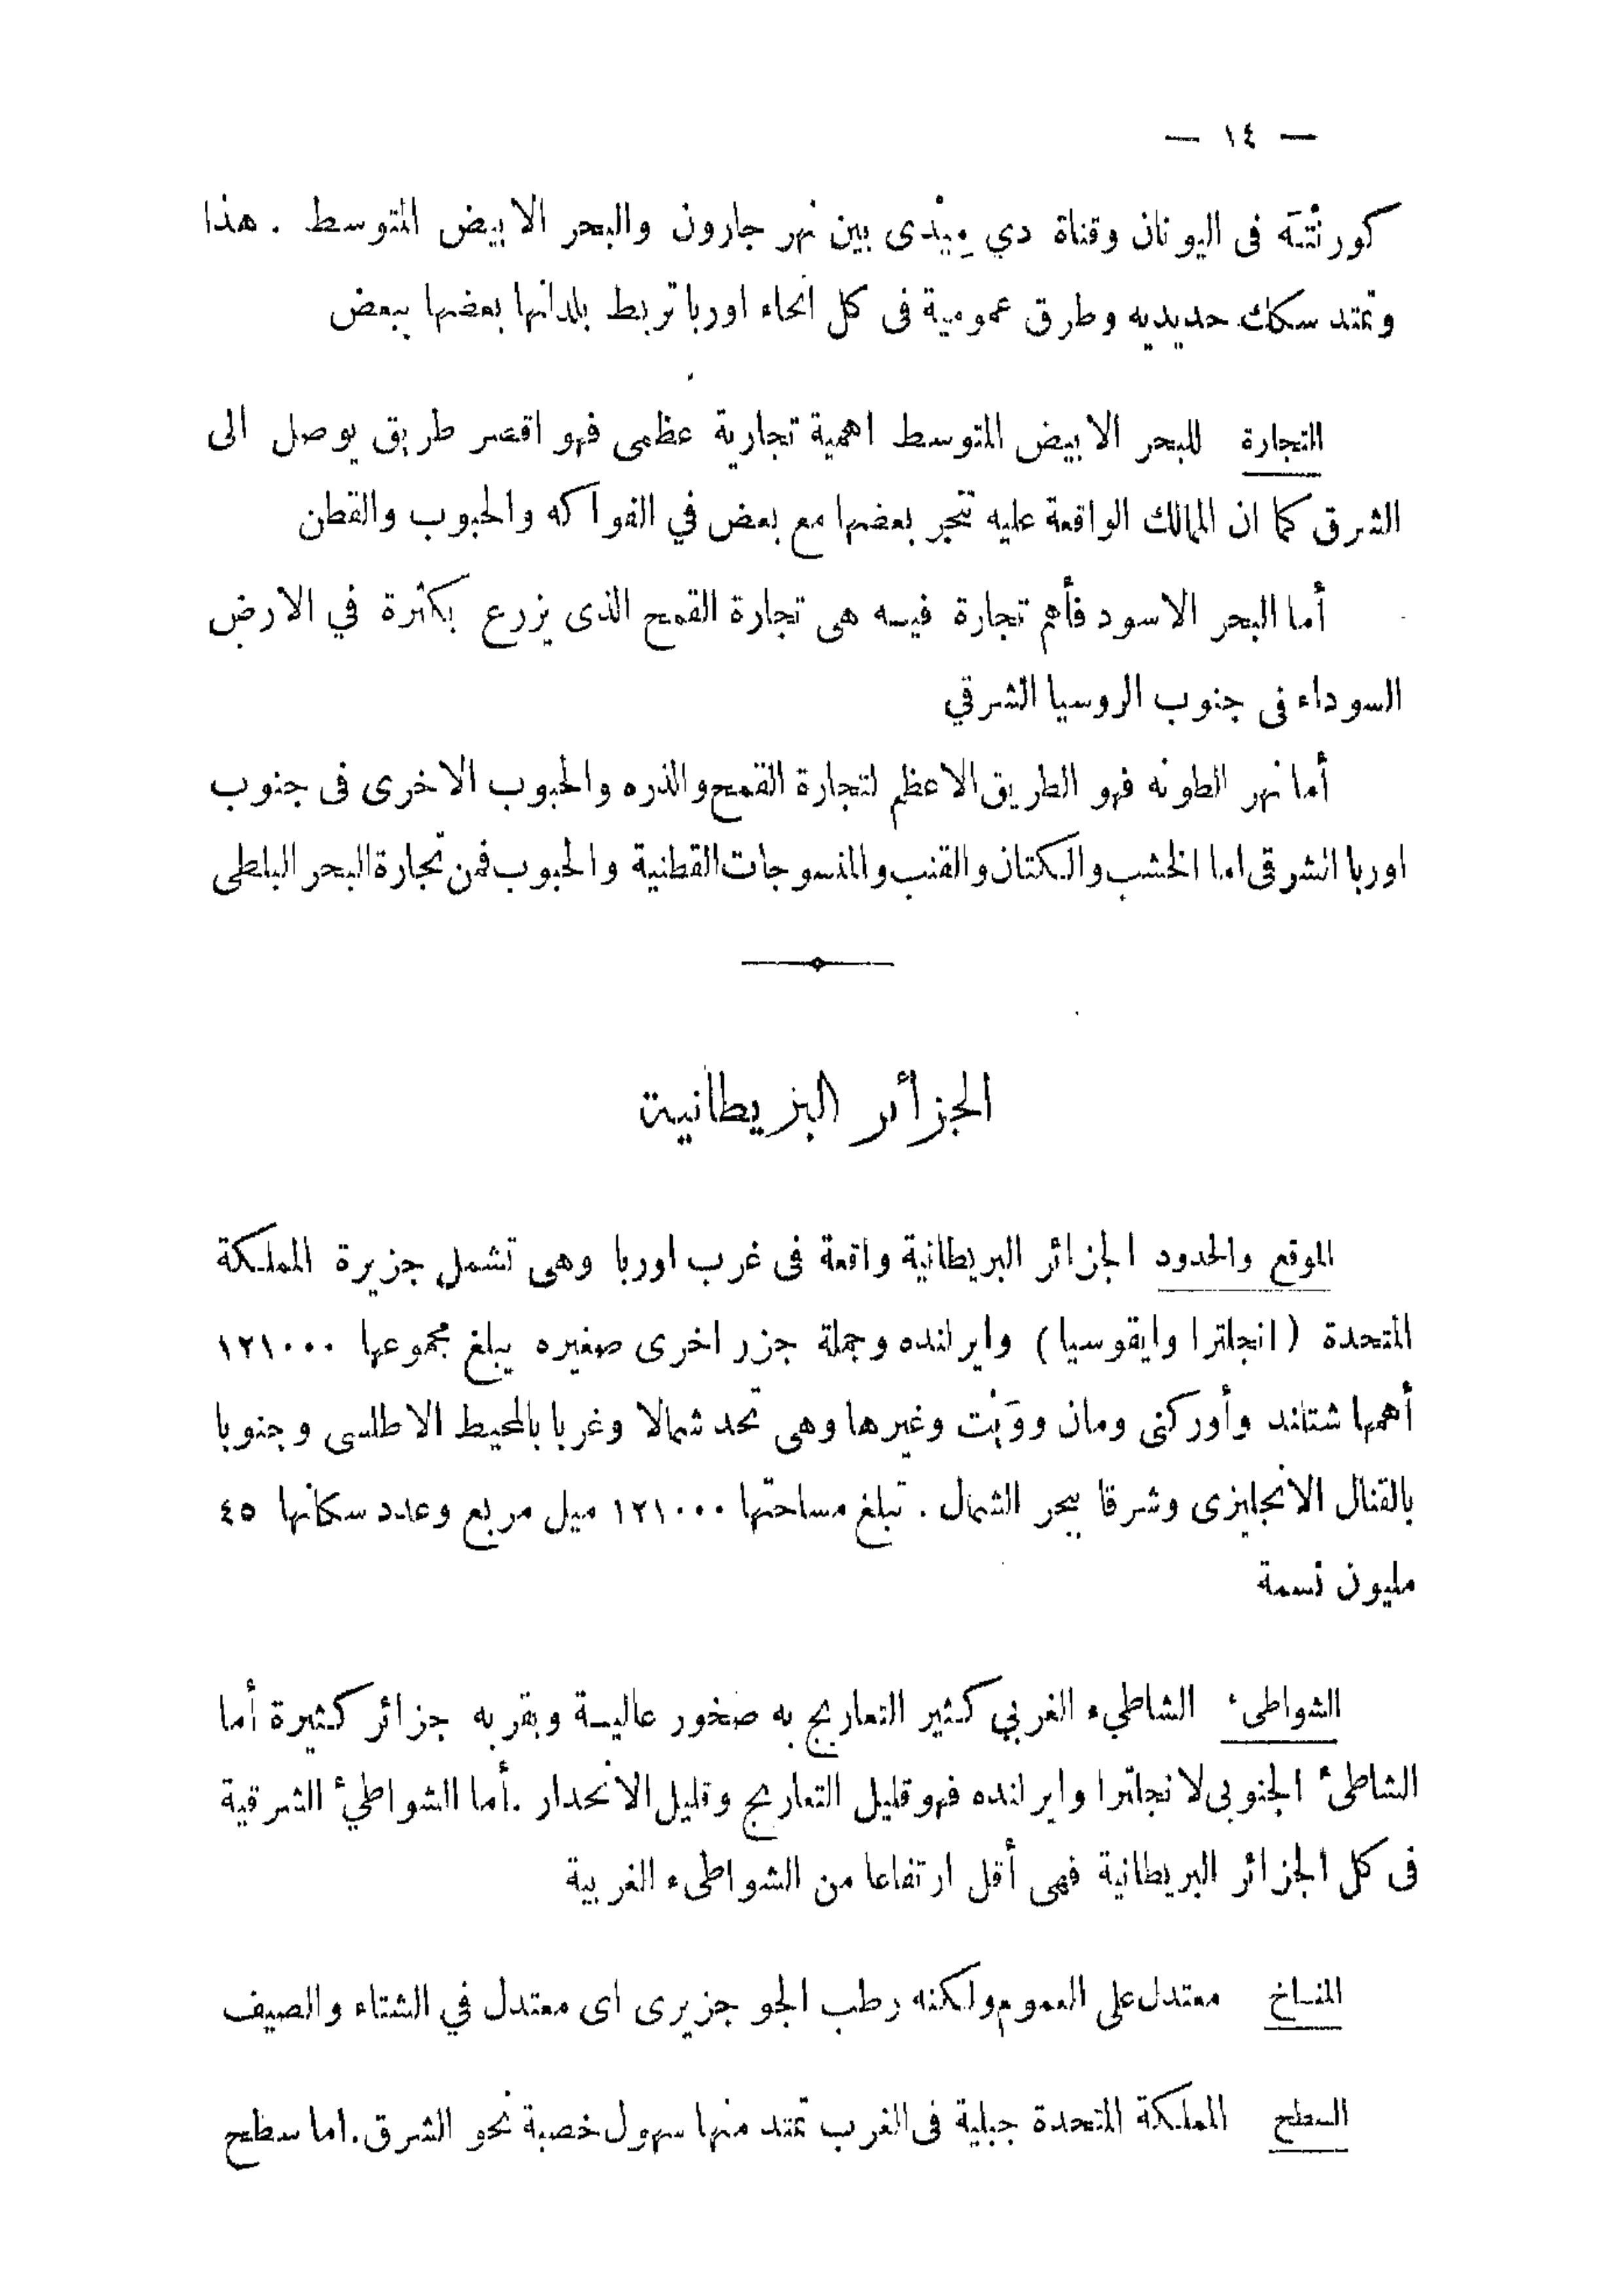 — ١٤ —
كورنْتَه فى اليونان وقناة دي مِيْدى بين نهر جارون والبحر الابيض المتوسط . هذا
وتمتد سكك حديديه وطرق عمومية فى كل انحاء اوربا تربط بلدانها بعضها ببعض
التجارة للبحر الابيض المتوسط اهمية تجارية عظمى فهو اقصر طريق يوصل الى
الشرق كما ان الممالك الواقعة عليه تتجر بعضها مع بعض في الفواكه والحبوب والقطن
أما البحر الاسود فأهم تجارة فيه هى تجارة القمح الذى يزرع بكثرة في الارض
السوداء فى جنوب الروسيا الشرقي
أما نهر الطونه فهو الطريق الاعظم لتجارة القمح والذره والحبوب الاخرى فى جنوب
اوربا الشرقى اما الخشب والكتان والقنب والمنسوجات القطنية والحبوب فمن تجارة البحر البلطى
الجزائر البريطانية
الموقع والحدود الجزائر البريطانية واقعة فى غرب اوربا وهى تشمل جزيرة المملكة
المتحدة (انجلترا وايقوسيا) وايرلنده وجملة جزر اخرى صغيره يبلغ مجموعها ١٢١٠٠٠
أهمها شتلند وأوركنى ومان ووَيْت وغيرها وهى تحد شمالا وغربا بالمحيط الاطلسى وجنوبا
بالقنال الانجليزى وشرقا ببحر الشمال . تبلغ مساحتها ١٢١٠٠٠ ميل مربع وعدد سكانها ٤٥
مليون نسمة
الشواطىء الشاطيء الغربي كثير التعاريج به صخور عالية وبقربه جزائر كثيرة أما
الشاطىء الجنوبى لانجلترا وايرلنده فهو قليل التعاريج وقليل الانحدار . أما الشواطيء الشرقية
فى كل الجزائر البريطانية فهى أقل ارتفاعا من الشواطىء الغربية
المناخ معتدل على العموم ولكنه رطب الجو جزيرى اى معتدل في الشتاء والصيف
السطح المملكة المتحدة جبلية فى الغرب تمتد منها سهول خصبة نحو الشرق. اما سطح